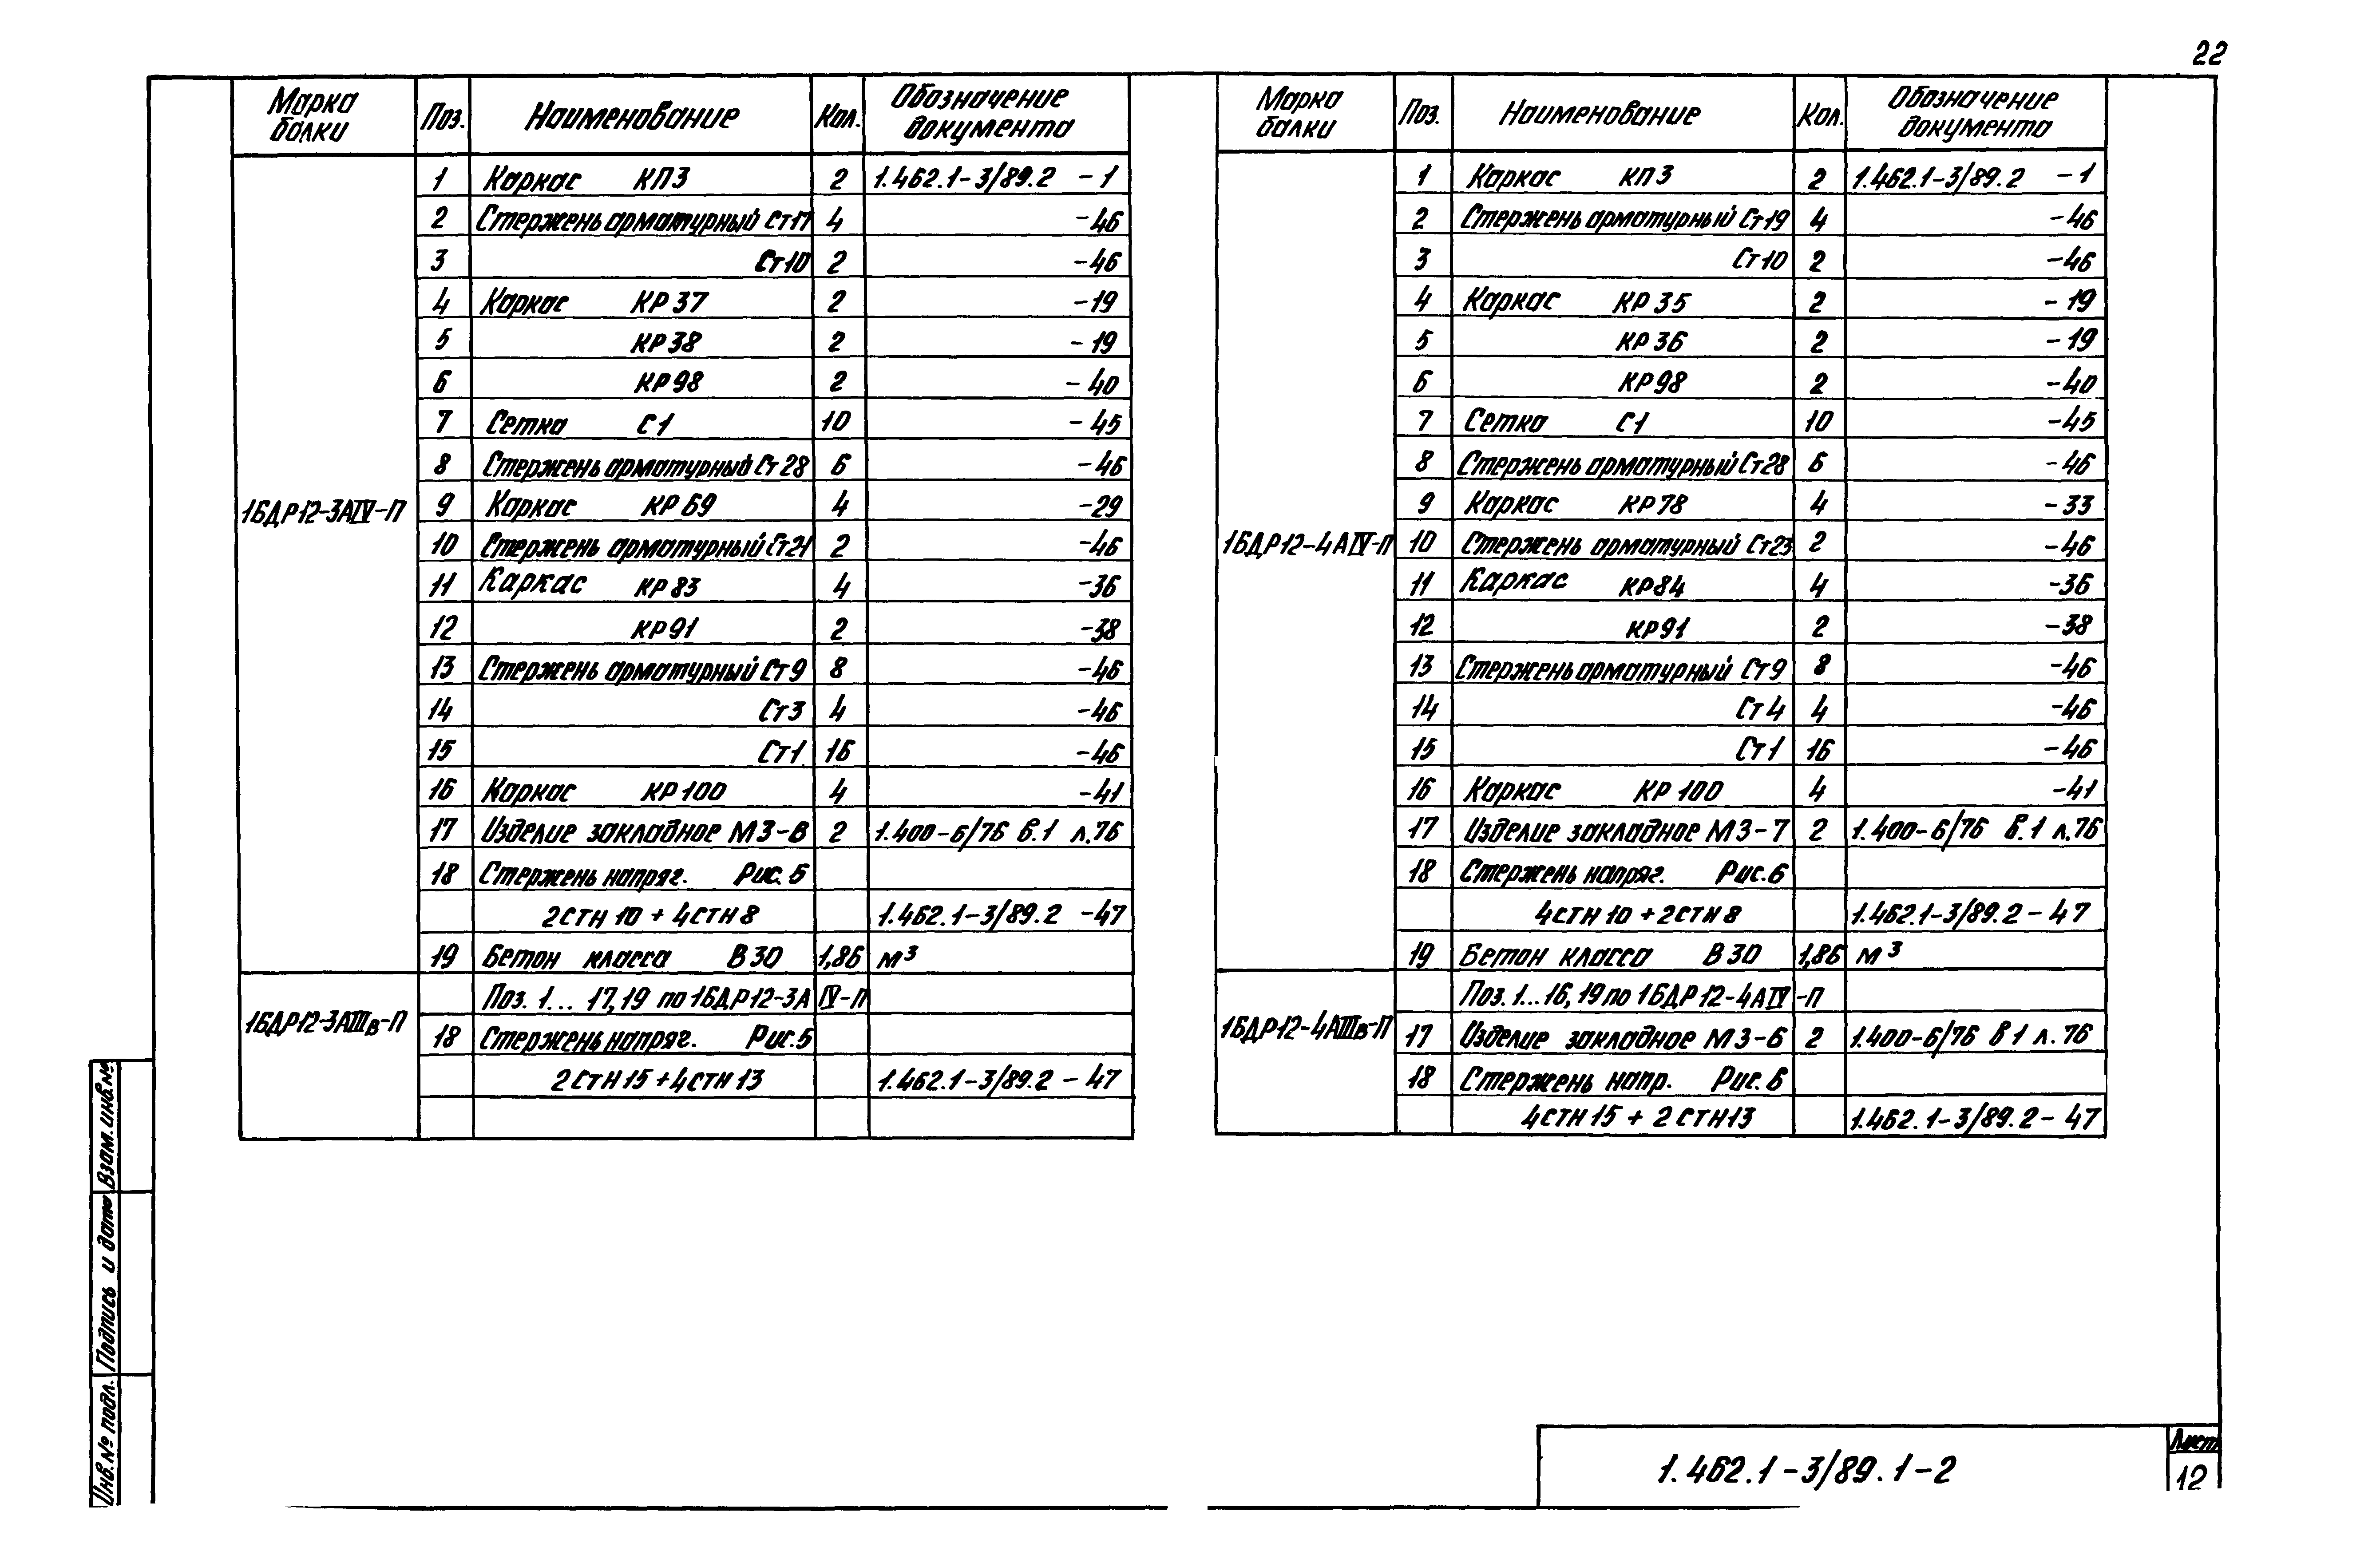 22
Марка балки Поз. Наименование Кол. Обозначение документа
1БДР12-3АIV-П
1 Каркас КП3 2 1.462.1-3/89.2 -1
2 Стержень арматурный Ст17 4 -46
3 Ст10 2 -46
4 Каркас КР37 2 -19
5 КР38 2 -19
6 КР98 2 -40
7 Сетка С1 10 -45
8 Стержень арматурный Ст28 6 -46
9 Каркас КР69 4 -29
10 Стержень арматурный Ст21 2 -46
11 Каркас КР83 4 -36
12 КР91 2 -38
13 Стержень арматурный Ст9 8 -46
14 Ст3 4 -46
15 Ст1 16 -46
16 Каркас КР100 4 -41
17 Изделие закладное М3-8 2 1.400-6/76 в.1 л.76
18 Стержень напряг. Рис.5
2СТН10 + 4СТН8 1.462.1-3/89.2 -47
19 Бетон класса В30 1,86 м³
1БДР12-3АIIIв-П
Поз. 1... 17,19 по 1БДР12-3АIV-П
18 Стержень напряг. Рис.5
2СТН15 + 4СТН13 1.462.1-3/89.2 -47
Марка балки Поз. Наименование Кол. Обозначение документа
1БДР12-4АIV-П
1 Каркас КП3 2 1.462.1-3/89.2 -1
2 Стержень арматурный Ст19 4 -46
3 Ст10 2 -46
4 Каркас КР35 2 -19
5 КР36 2 -19
6 КР98 2 -40
7 Сетка С1 10 -45
8 Стержень арматурный Ст28 6 -46
9 Каркас КР78 4 -33
10 Стержень арматурный Ст23 2 -46
11 Каркас КР84 4 -36
12 КР91 2 -38
13 Стержень арматурный Ст9 8 -46
14 Ст4 4 -46
15 Ст1 16 -46
16 Каркас КР100 4 -41
17 Изделие закладное М3-7 2 1.400-6/76 в.1 л.76
18 Стержень напряг. Рис.6
4СТН10 + 2СТН8 1.462.1-3/89.2 -47
19 Бетон класса В30 1,86 м³
1БДР12-4АIIIв-П
Поз. 1... 16, 19 по 1БДР12-4АIV-П
17 Изделие закладное М3-6 2 1.400-6/76 в 1 л.76
18 Стержень напр. Рис.6
4СТН15 + 2СТН13 1.462.1-3/89.2 -47
Взам.инв.№
Подпись и дата
Инв.№ подл.
1.462.1-3/89.1-2
Лист
12